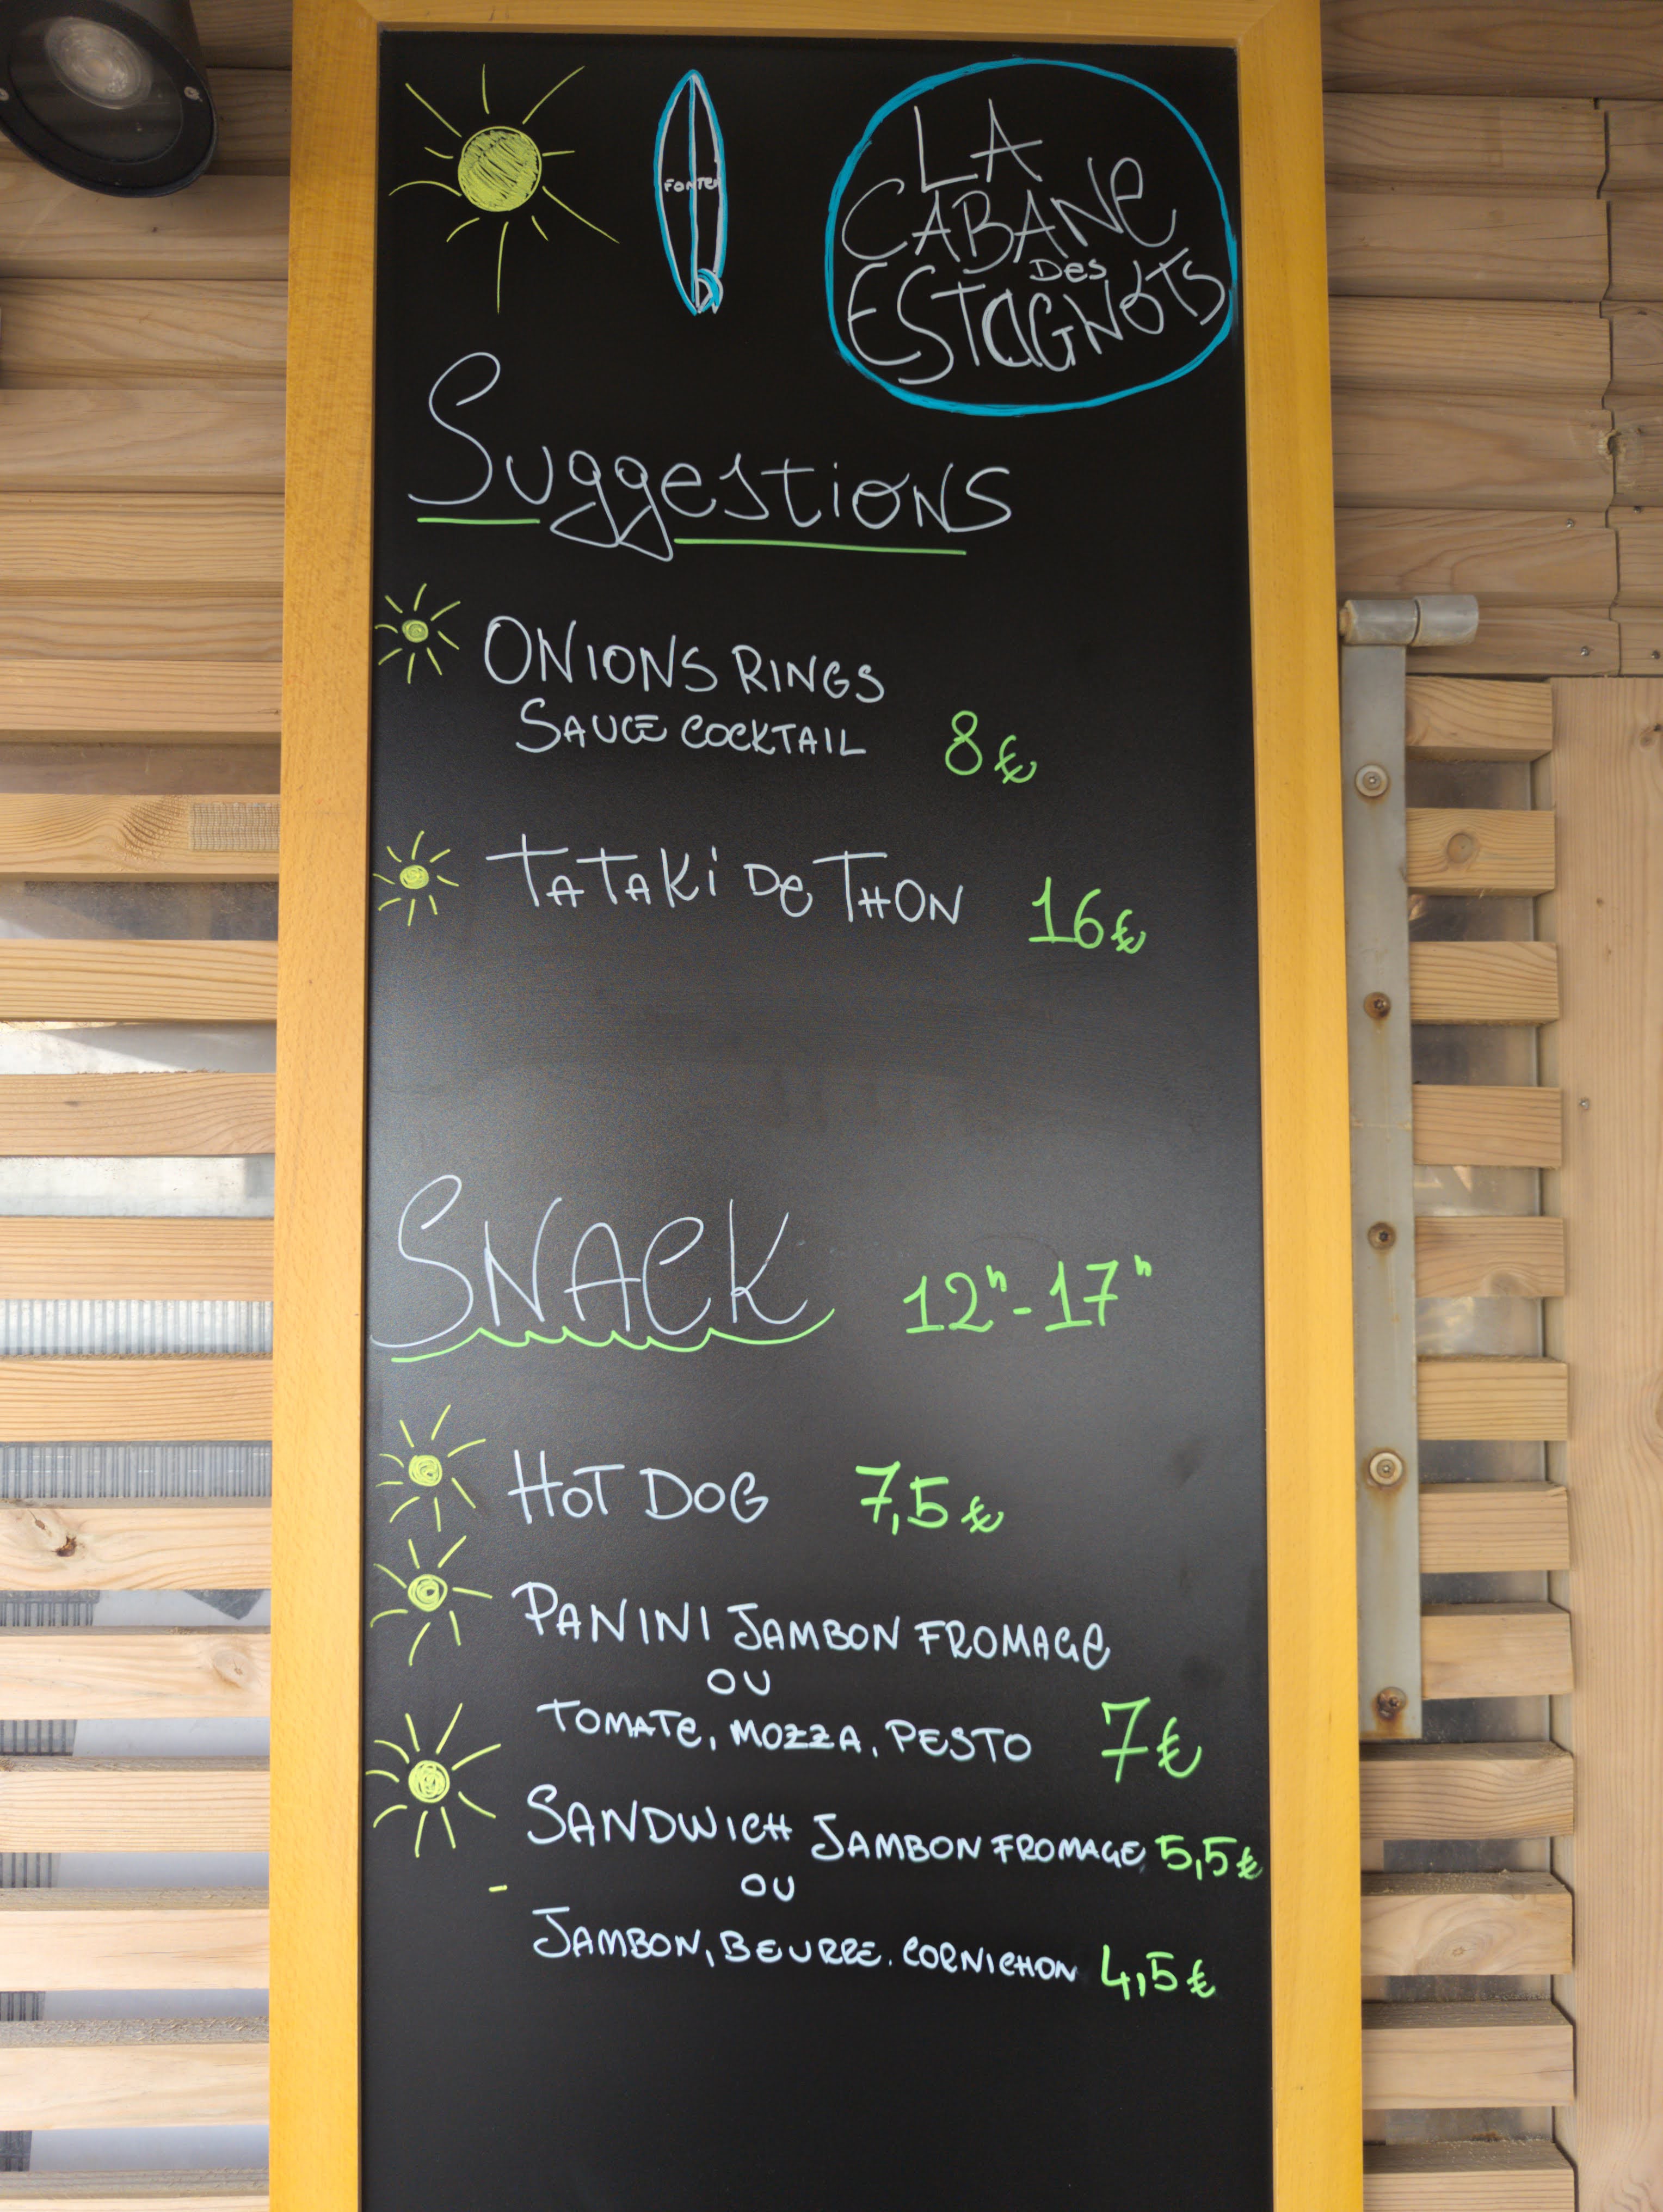 FONTE
LA
CABANE
DES
ESTAGNOTS
Suggestions
ONIONS RINGS
SAUCE COCKTAIL 8€
TATAKI DE THON 16€
SNACK 12h-17h
HOT DOG 7,5€
PANINI JAMBON FROMAGE
OU
TOMATE, MOZZA, PESTO 7€
SANDWICH JAMBON FROMAGE, 5,5€
OU
JAMBON, BEURRE, CORNICHON 4,5€